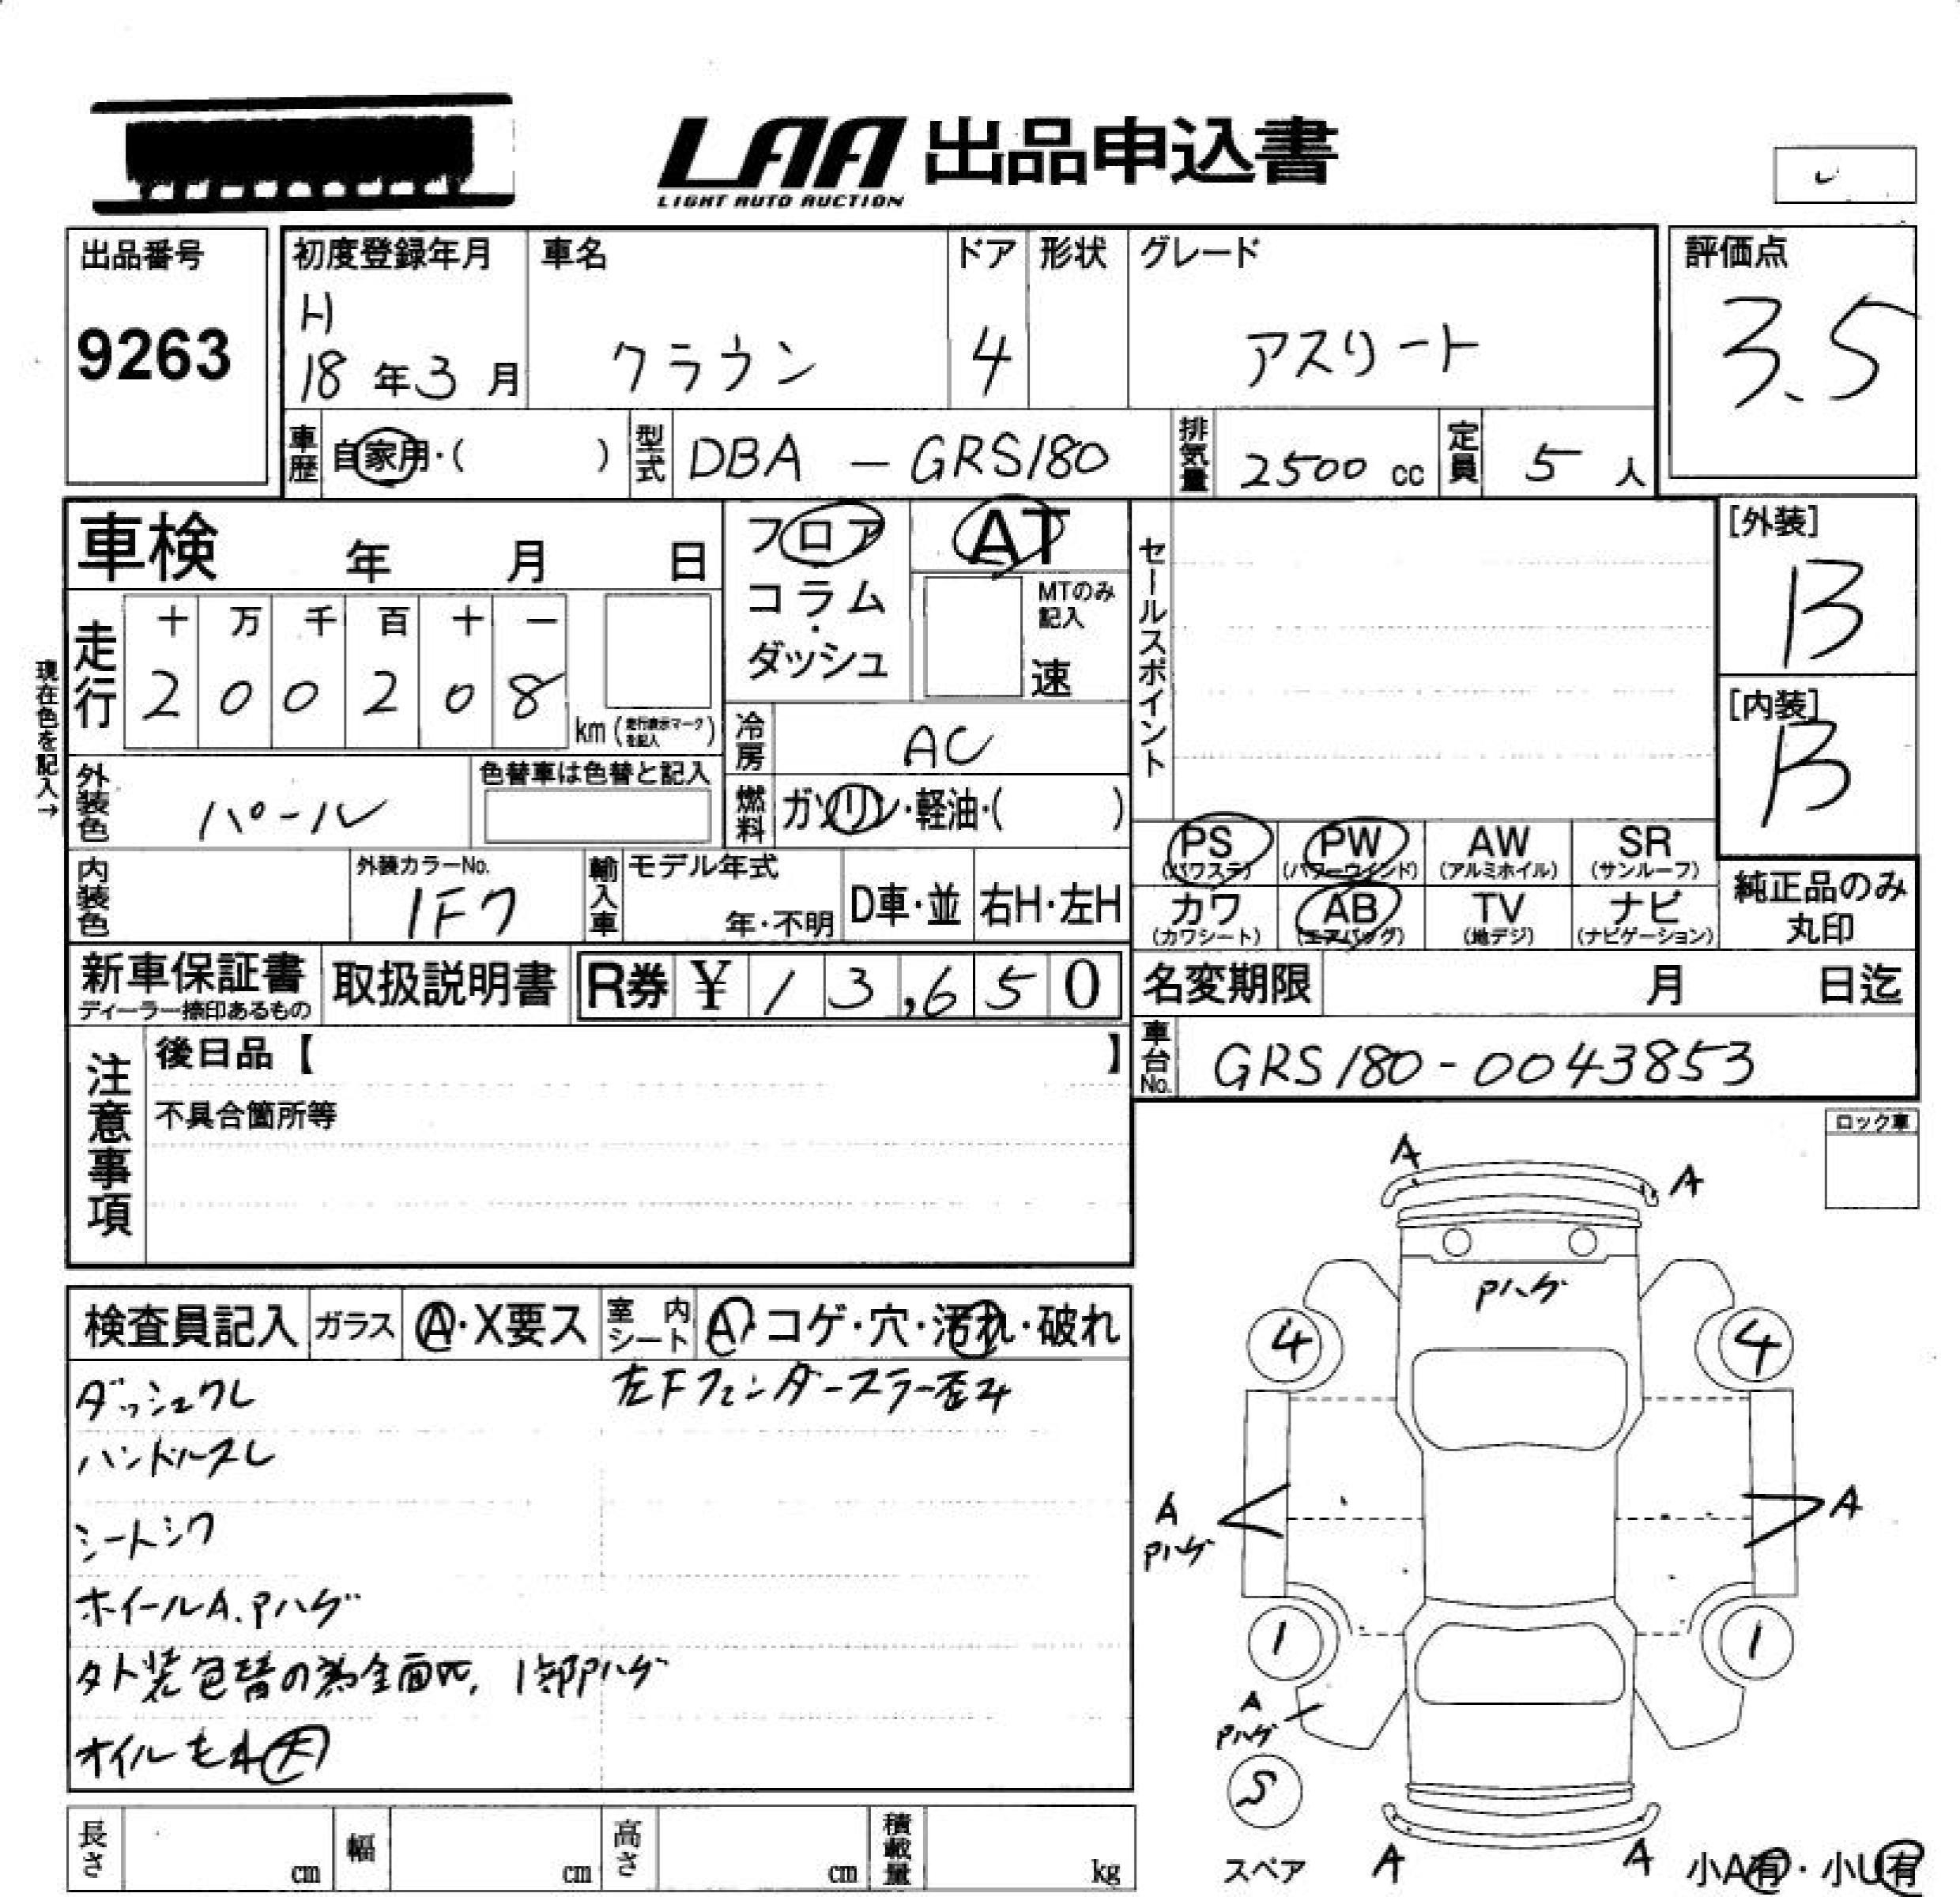 LAA 出品申込書
LIGHT AUTO AUCTION
出品番号
9263
初度登録年月
H
18 年 3 月
車名
クラウン
ドア
4
形状
グレード
アスリート
評価点
3.5
車歴 自家用・( )
型式 DBA - GRS180
排気量 2500 cc
定員 5 人
車検 年 月 日
フロア
コラム
・
ダッシュ
AT
MTのみ
記入
速
セールスポイント
[外装]
B
[内装]
B
現在色を記入→
走行
十 万 千 百 十 一
2 0 0 2 0 8
km (走行表示マークを記入)
冷房 AC
外装色 パール
色替車は色替と記入
燃料 ガソリン・軽油・( )
PS PW AW SR
(パワステ) (パワーウインド) (アルミホイル) (サンルーフ)
カワ AB TV ナビ
(カワシート) (エアバッグ) (地デジ) (ナビゲーション)
純正品のみ
丸印
内装色
外装カラーNo.
1F7
輸入車
モデル年式
年・不明
D車・並
右H・左H
新車保証書
ディーラー捺印あるもの
取扱説明書
R券 ¥ 13,650
名変期限 月 日迄
車台No. GRS180-0043853
注意事項
後日品【 】
不具合箇所等
ロック車
検査員記入
ガラス A・X要ス
室内シート A・コゲ・穴・汚れ・破れ
ダッシュクレ
左Fフェンダーステー歪み
ハンドルスレ
シートシワ
ホイールA.Pハゲ
外装色替の為全面P, 1部Pハゲ
オイルもれ大
A
A
Pハゲ
4
4
A
Pハゲ
A
1
1
A
Pハゲ
S
スペア
A
A
小A有・小U有
長さ cm
幅 cm
高さ cm
積載量 kg